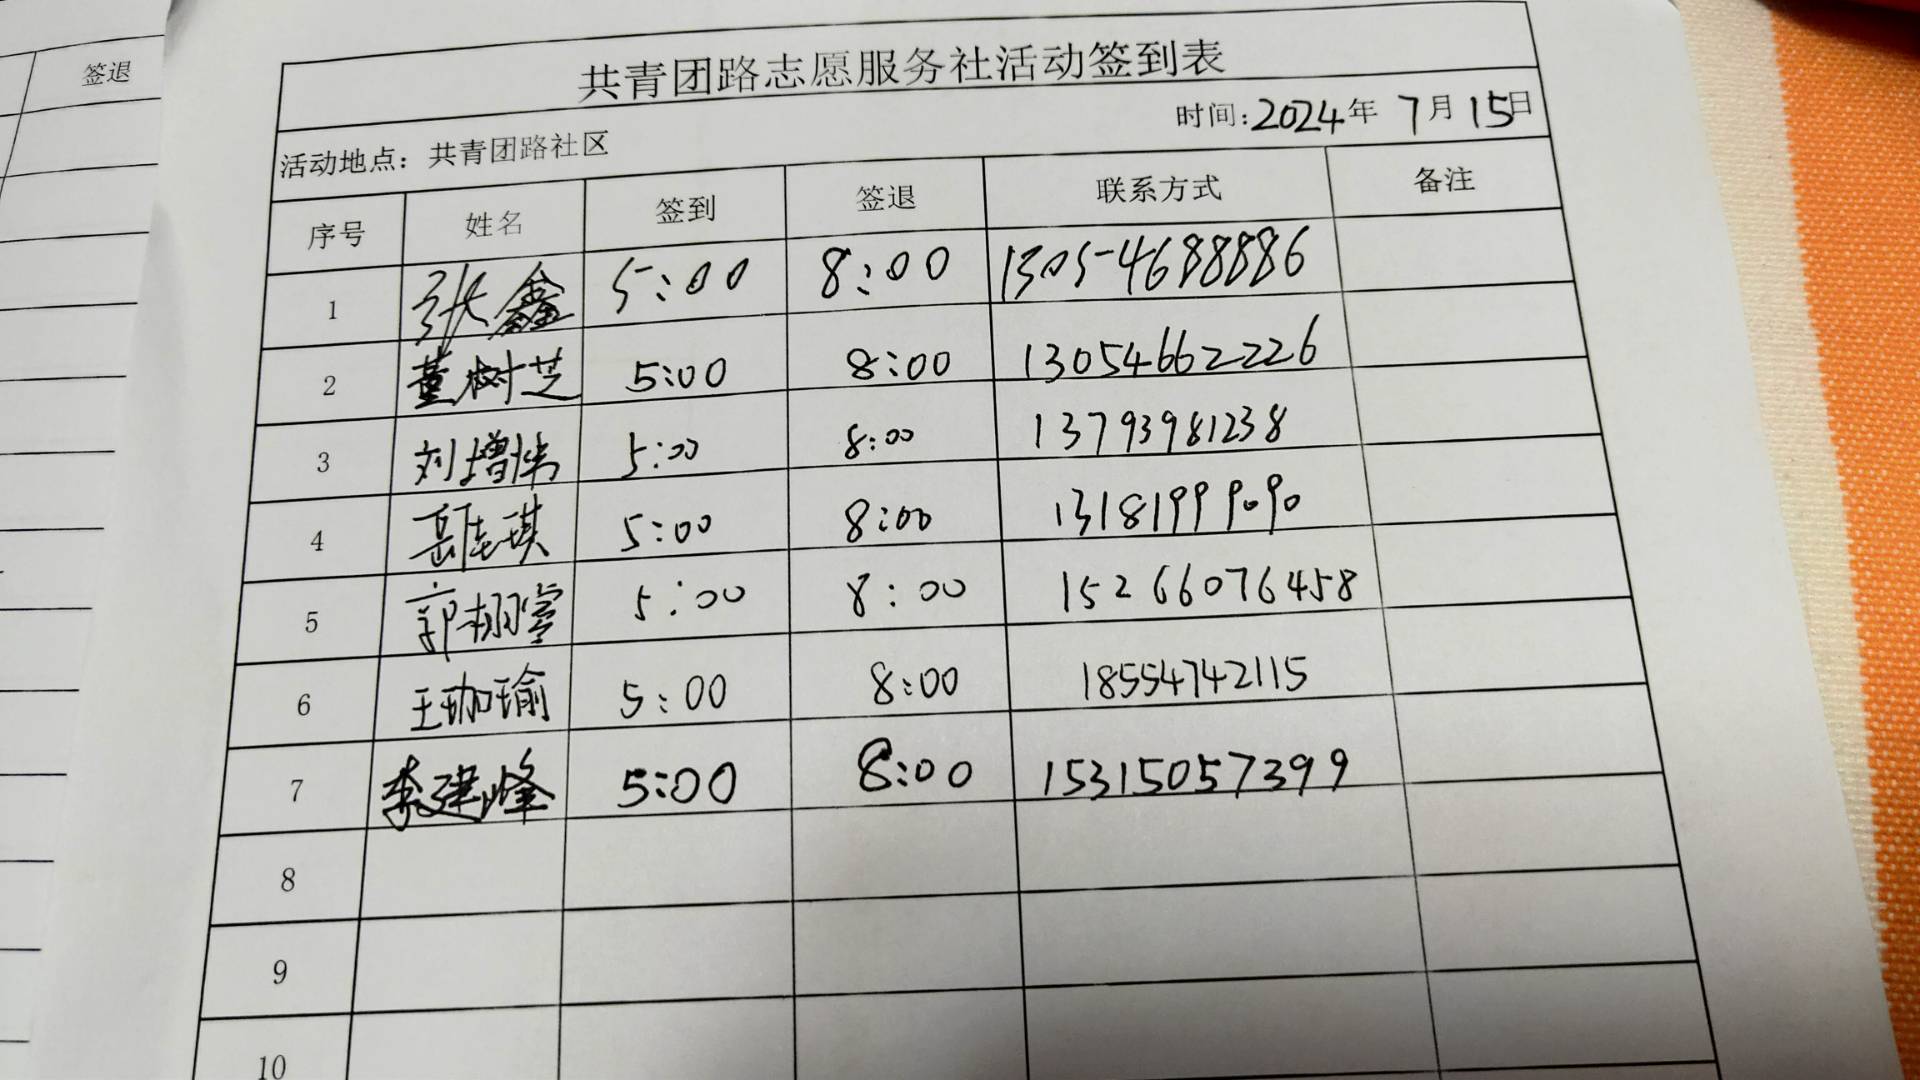 签退
共青团路志愿服务社活动签到表
时间:2024年 7月15日
活动地点：共青团路社区
序号 姓名 签到 签退 联系方式 备注
1 张鑫 5:00 8:00 13054688886
2 董树芝 5:00 8:00 13054662226
3 刘增伟 5:00 8:00 13793981238
4 5:00 8:00 13181999090
5 郭栩莹 5:00 8:00 15266076458
6 王珈瑜 5:00 8:00 18554742115
7 李建峰 5:00 8:00 15315057399
8
9
10